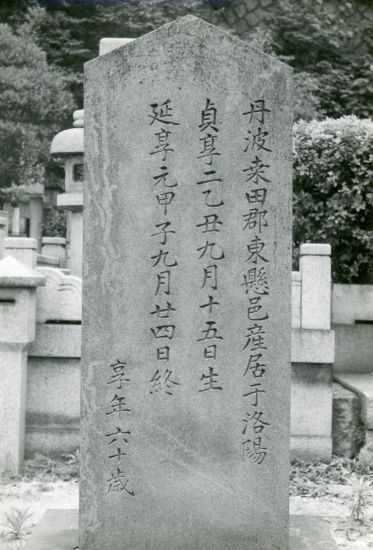 丹波桒田郡東懸邑産居于洛陽
貞享二乙丑九月十五日生
延享元甲子九月廿四日終
享年六十歳